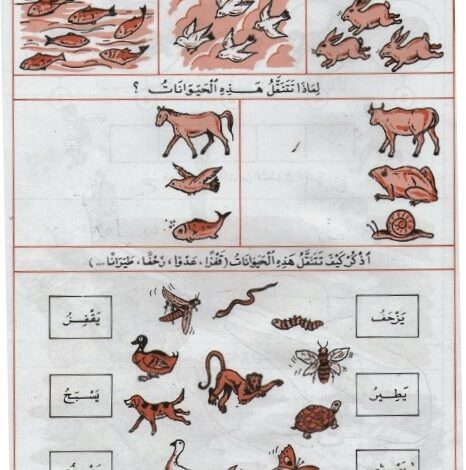 لِمَاذَا تَتَنَقَّلُ هَـذِهِ الْحَيَوَانَاتُ ؟
اُذْكُرْ كَيْفَ تَتَنَقَّلُ هَـذِهِ الْحَيَوَانَاتُ (قَفْزًا، عَدْوًا، زَحْفًا، طَيَرَانًا ...)
يَزْحَفُ
يَقْفِزُ
يَطِيرُ
يَسْبَحُ